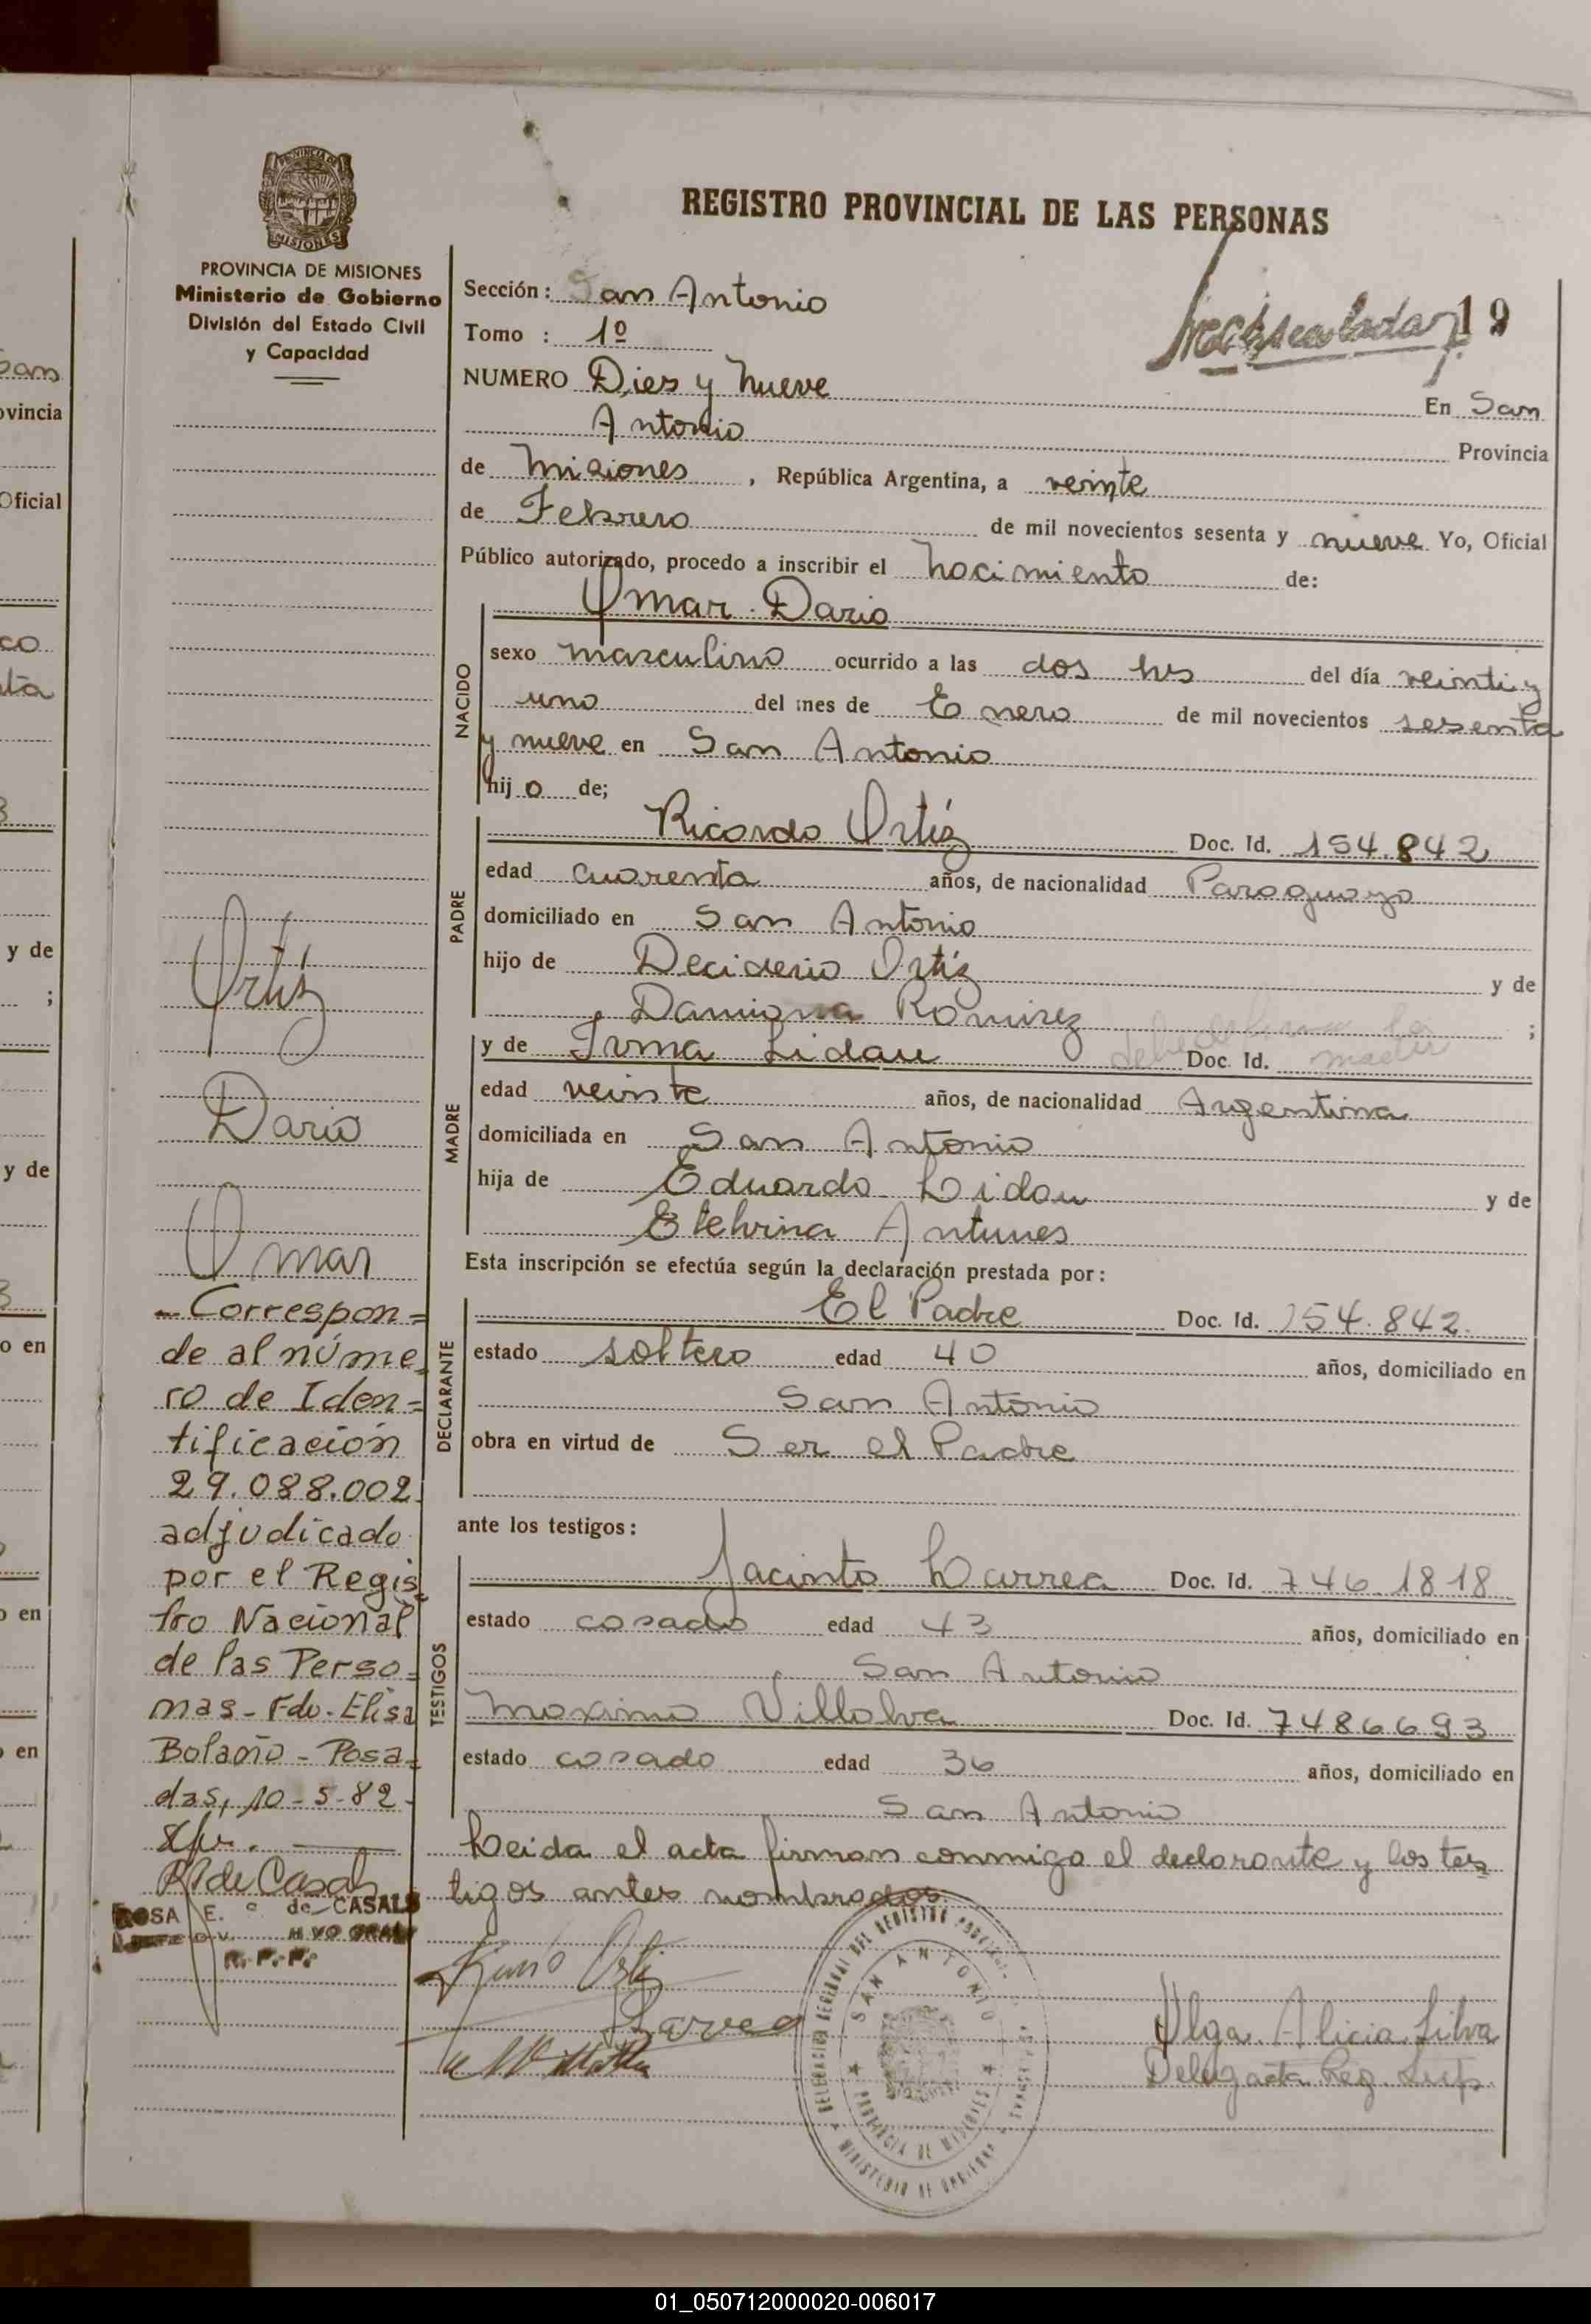 PROVINCIA DE MISIONES
Ministerio de Gobierno
División del Estado Civil
y Capacidad
REGISTRO PROVINCIAL DE LAS PERSONAS
19
Sección: San Antonio
Tomo : 1º
NUMERO Dies y nueve En San
Antonio Provincia
de Misiones, República Argentina, a veinte
de Febrero de mil novecientos sesenta y nueve Yo, Oficial
Público autorizado, procedo a inscribir el nacimiento de:
NACIDO
Omar Dario
sexo masculino ocurrido a las dos hs del día veinti y
uno del mes de Enero de mil novecientos sesenta
y nueve en San Antonio
hijo de;
PADRE
Ricardo Ortíz Doc. Id. 154.842
edad cuarenta años, de nacionalidad Paraguayo
domiciliado en San Antonio
hijo de Deciderio Ortíz y de
Damiana Romirez ;
MADRE
y de Irma Lidau Doc. Id.
debe de firmar la madre
edad veinte años, de nacionalidad Argentina
domiciliada en San Antonio
hija de Eduardo Lidau y de
Etelvina Antunes
Esta inscripción se efectúa según la declaración prestada por:
DECLARANTE
El Padre Doc. Id. 154.842.
estado soltero edad 40 años, domiciliado en
San Antonio
obra en virtud de Ser el Padre
ante los testigos:
TESTIGOS
Jacinto Larrea Doc. Id. 746.1818
estado casado edad 43 años, domiciliado en
San Antonio
Maximo Villalva Doc. Id. 7486693
estado casado edad 36 años, domiciliado en
San Antonio
Leida el acta firman conmigo el declarante y los tes
tigos antes nombrados.
Ortiz
Larrea
Olga Alicia Silva
Delegada Reg. Sup.
DELEGACION REGIONAL DEL REGISTRO
SAN ANTONIO
PROVINCIA DE MISIONES
MINISTERIO DE GOBIERNO
Ortíz
Dario
Omar
- Correspon=
de al núme
ro de Iden=
tificación
29.088.002
adjudicado
por el Regis
tro Nacional
de las Perso=
nas - Fdo. Elisa
Bolaño - Posa=
das, 10-5-82.
R de Casals
ROSA E. de CASALS
R.P.P.
San
ovincia
Oficial
co
y de
;
y de
o en
o en
o en
01_050712000020-006017